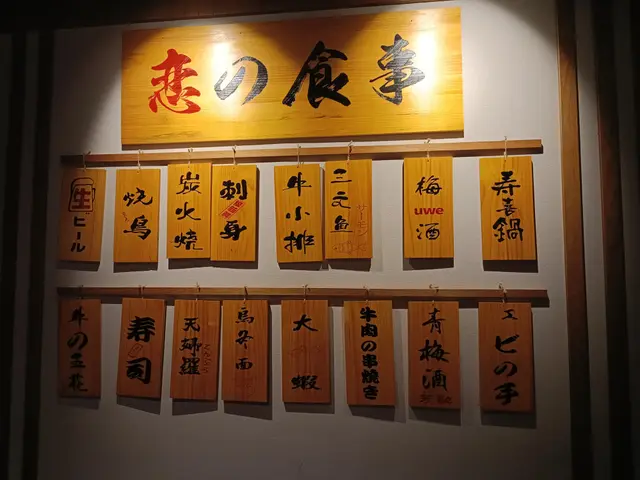 恋の食事
生
ビール
焼鳥
炭火焼
刺身
牛小排
三文鱼
サーモン
梅酒
uwe
寿喜鍋
牛の五花
寿の司
天婦羅
烏冬面
大蝦
牛肉の串焼き
青梅酒
エビの手